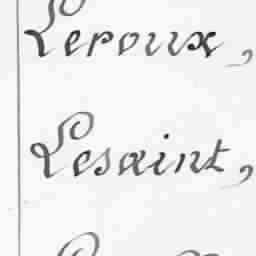 Leroux,
Lesaint,